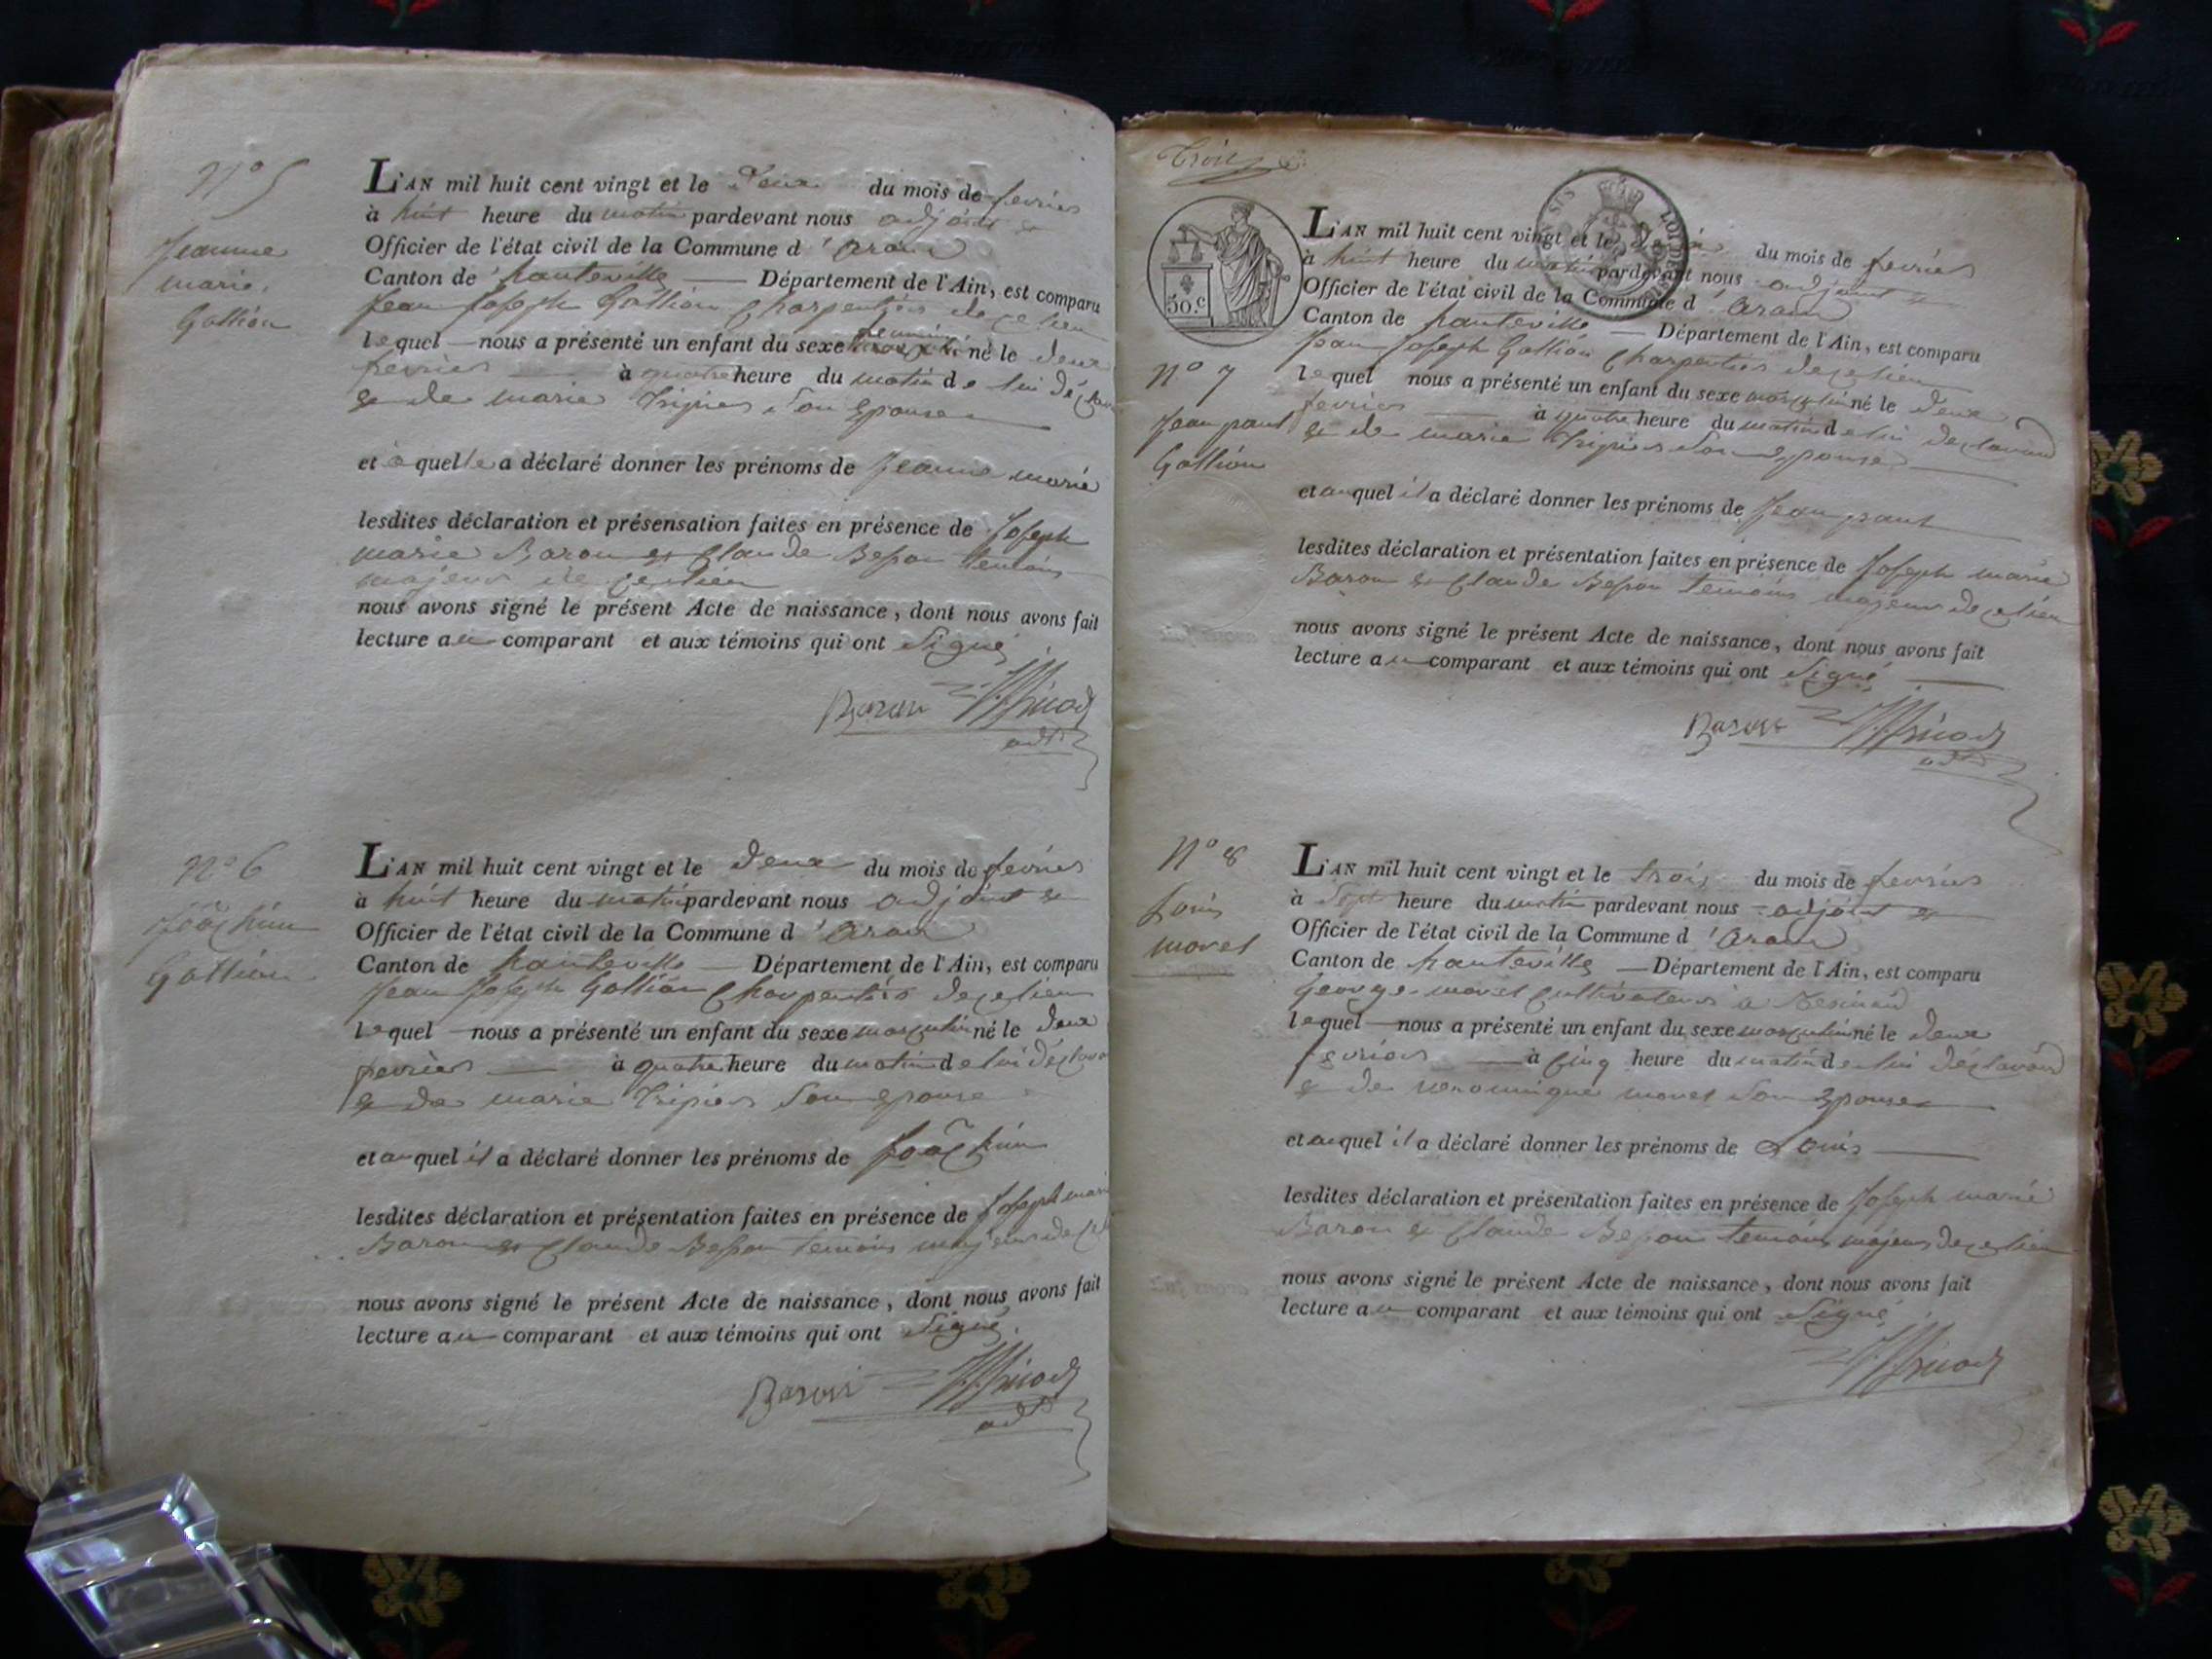 N.o 5
Jeanne
marie
Gallion
L'AN mil huit cent vingt et le Deux du mois de fevrier
à huit heure du matin pardevant nous adjoint &
Officier de l'état civil de la Commune d'aran
Canton de hauteville Département de l'Ain, est comparu
Jean Joseph Gallion Charpentier de ce lieu
lequel nous a présenté un enfant du sexe feminin né le deux
fevrier à quatre heure du matin de lui
& de marie Tripier Son Epouse
et a quelle a déclaré donner les prénoms de Jeanne marie
lesdites déclaration et présensation faites en présence de Joseph
marie Baron et Claude Besson temoins
majeurs de ce lieu
nous avons signé le présent Acte de naissance, dont nous avons fait
lecture au comparant et aux témoins qui ont Signé
Baron
adt
N.o 6
Joachim
Gallion
L'AN mil huit cent vingt et le deux du mois de fevrier
à huit heure du matin pardevant nous adjoint &
Officier de l'état civil de la Commune d'aran
Canton de hauteville Département de l'Ain, est comparu
Jean Joseph Gallion Charpentier de ce lieu
lequel nous a présenté un enfant du sexe masculin né le deux
fevrier à quatre heure du matin de lui
& de marie Tripier Son Epouse
et auquel il a déclaré donner les prénoms de Joachim
lesdites déclaration et présentation faites en présence de Joseph marie
Baron & Claude Besson temoins majeurs de ce
nous avons signé le présent Acte de naissance, dont nous avons fait
lecture au comparant et aux témoins qui ont Signé
Baron
adt
Trois
50.c
N.o 7
Jean paul
Gallion
L'AN mil huit cent vingt et le du mois de fevrier
à huit heure du matin pardevant nous adjoint &
Officier de l'état civil de la Commune d'aran
Canton de hauteville Département de l'Ain, est comparu
Jean Joseph Gallion Charpentier de ce lieu
lequel nous a présenté un enfant du sexe masculin né le deux
fevrier à quatre heure du matin de lui declarand
& de marie Tripier Son Epouse
et auquel il a déclaré donner les prénoms de Jean paul
lesdites déclaration et présentation faites en présence de Joseph marie
Baron & Claude Besson temoins majeurs de ce lieu
nous avons signé le présent Acte de naissance, dont nous avons fait
lecture au comparant et aux témoins qui ont Signé
Baron
adt
N.o 8
Louis
morel
L'AN mil huit cent vingt et le trois du mois de fevrier
à Sept heure du matin pardevant nous adjoint &
Officier de l'état civil de la Commune d'aran
Canton de hauteville Département de l'Ain, est comparu
George morel Cultivateur a
lequel nous a présenté un enfant du sexe masculin né le deux
fevrier à Cinq heure du matin de lui declarand
& de veronnique morel Son Epouse
et auquel il a déclaré donner les prénoms de Louis
lesdites déclaration et présentation faites en présence de Joseph marie
Baron & Claude Besson temoins majeurs de ce lieu
nous avons signé le présent Acte de naissance, dont nous avons fait
lecture au comparant et aux témoins qui ont Signé